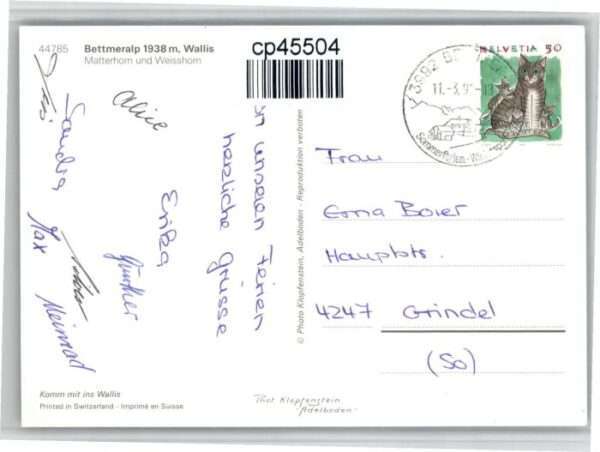 44785
Bettmeralp 1938 m, Wallis
Matterhorn und Weisshorn
cp45504
HELVETIA 50
3992 BE
11.-3.9
Sommerferien - Wi
Von unseren Ferien
herzliche Grüsse
Alice
Erika
Günther
Sandra
Max
Meinrad
© Photo Klopfenstein, Adelboden - Reproduktion verboten
Frau
Erna Boier
Hauptstr.
4247 Grindel
(So)
Komm mit ins Wallis
Printed in Switzerland - Imprimé en Suisse
Phot Klopfenstein
"Adelboden"